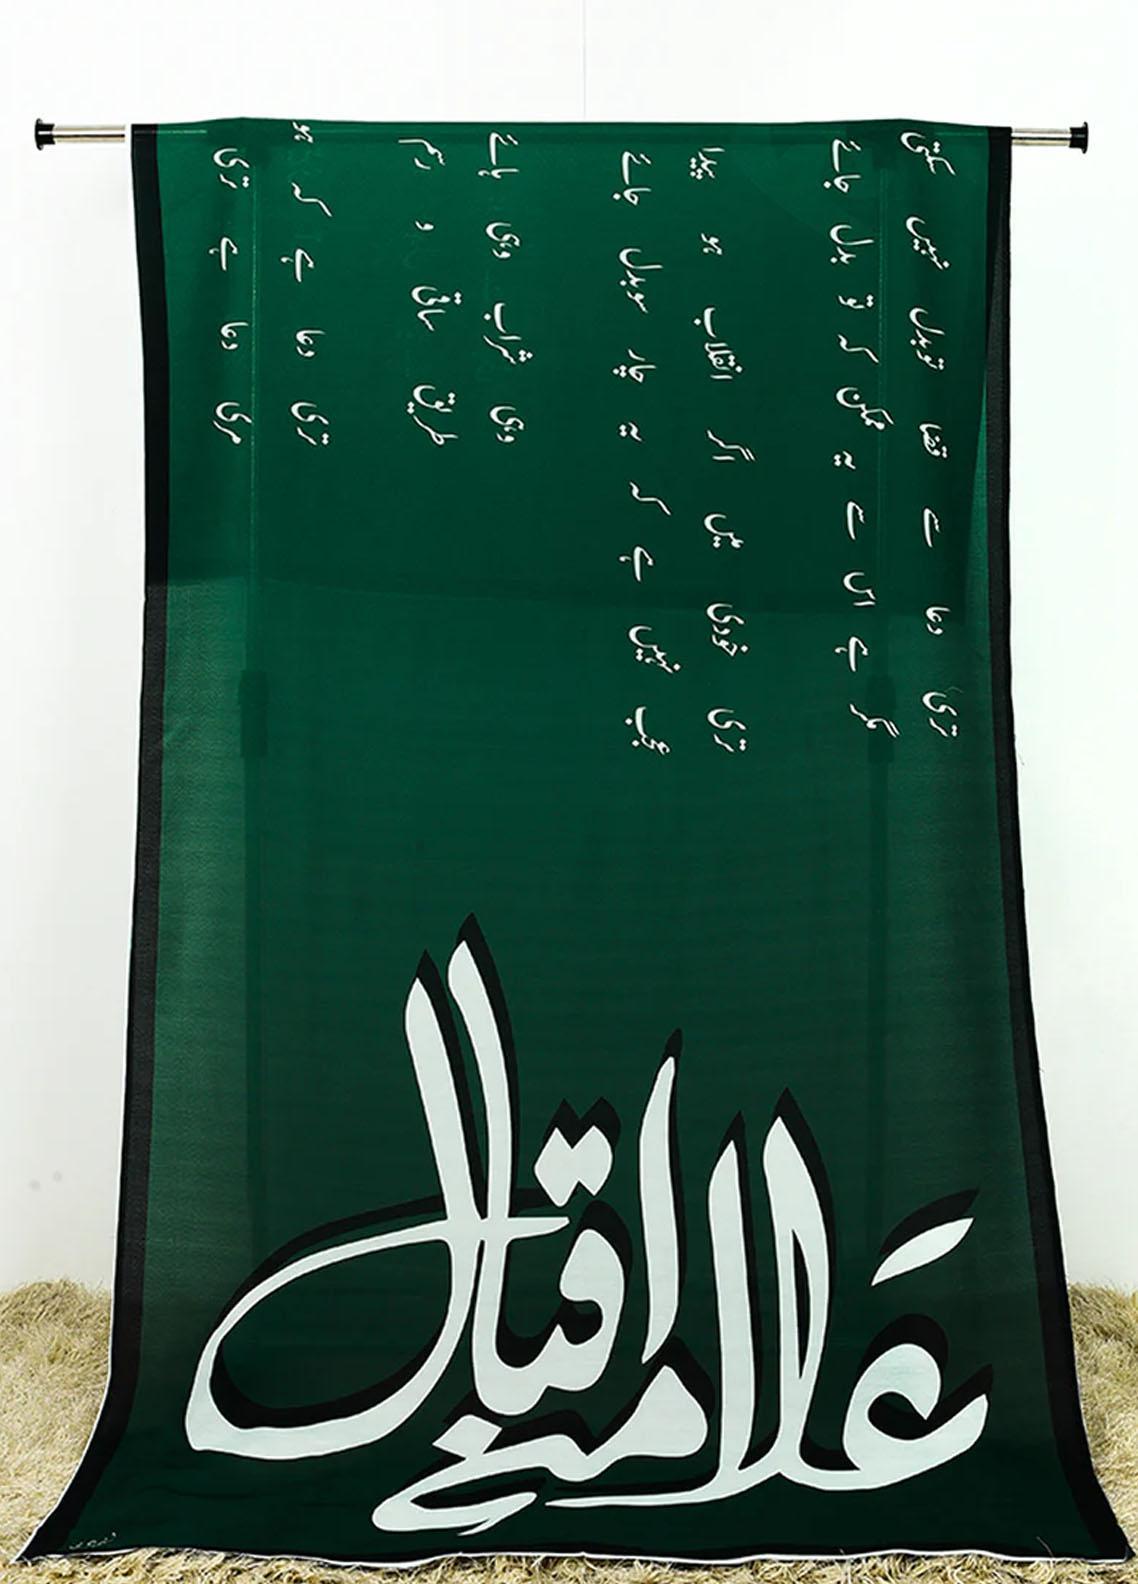 تری دعا سے قضا تو بدل نہیں سکتی
مگر ہے اس سے یہ ممکن کہ تو بدل جائے
تری خودی میں اگر انقلاب ہو پیدا
عجب نہیں ہے کہ یہ چار سو بدل جائے
وہی شراب وہی ہائے
طریق ساقی و رسم
تری دعا ہے کہ ہو
مری دعا ہے تری
علامہ اقبال